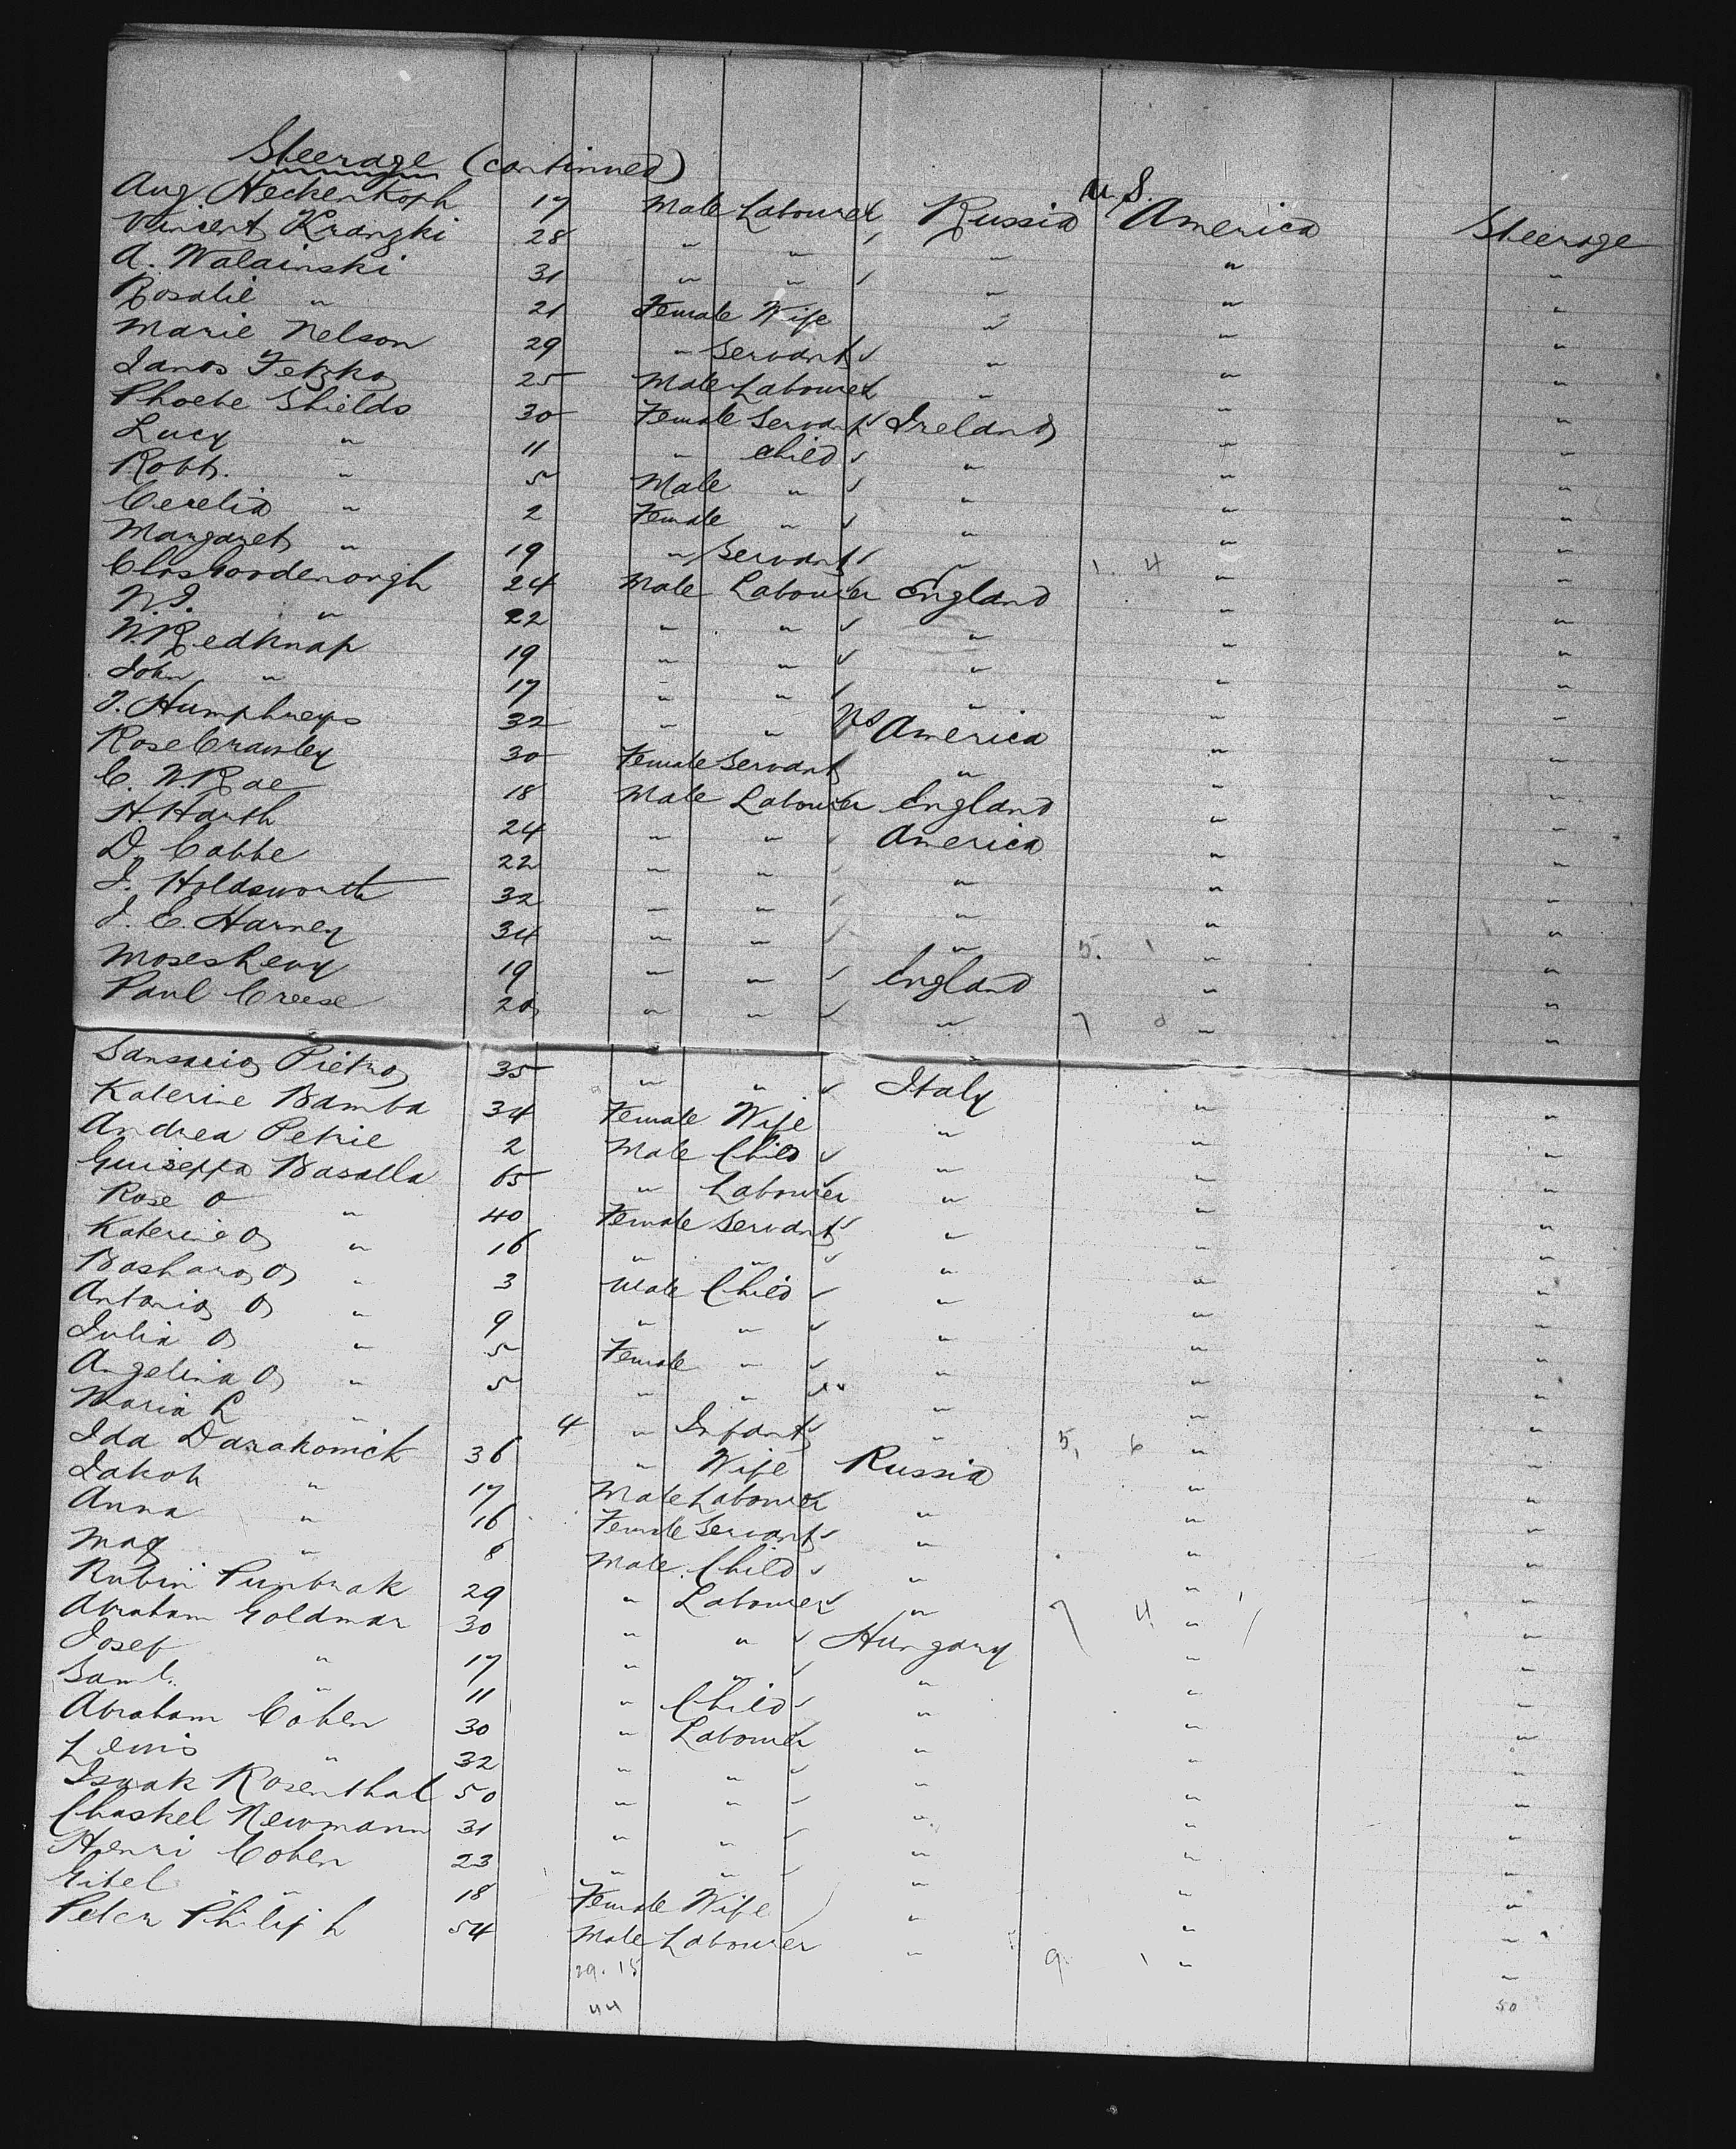 Steerage (continued)
Aug Heckenkoph 17 Male Labourer Russia U.S. America Steerage
Vincent Kranzki 28 " " " " "
A. Walainski 31 " " " " "
Rosalie " 21 Female Wife " " "
Marie Nelson 29 " Servant " " "
Janos Fetzko 25 Male Labourer " " "
Phoebe Shields 30 Female Servant Ireland " "
Lucy " 11 " Child " " "
Robt. " 5 Male " " " "
Cecelia " 2 Female " " " "
Margaret " 19 " Servant " 1. 4 " "
Chas Goodenough 24 Male Labourer England " "
W. J. " 22 " " " " "
W. Redknap 19 " " " " "
John " 17 " " " " "
J. Humphreys 32 " " US America " "
Rose Crawley 30 Female Servant " " "
C. W. Rae 18 Male Labourer England " "
H. Harth 24 " " America " "
D. Cabbe 22 " " " " "
J. Holdsworth 32 " " " " "
J. C. Harney 34 " " " 5. 1 " "
Moses Levy 19 " " England " "
Paul Creese 20 " " " 7 " "
Sansario Pietro 35 " " Italy " "
Katerine Bamba 34 Female Wife " " "
Andrea Petrie 2 Male Child " " "
Guiseppa Basalla 65 " Labourer " " "
Rose O " 40 Female Servant " " "
Katerine O " 16 " " " " "
Basharo O " 3 Male Child " " "
Antonio O " 9 " " " " "
Julia O " 5 Female " " " "
Angelina O " 5 " " " " "
Maria L " 4 " Infant " 5, 6 " "
Ida Darakowich 36 " Wife Russia " "
Jakob " 17 Male Labourer " " "
Anna " 16 Female Servant " " "
Max " 8 Male Child " " "
Rubin Purbrak 29 " Labourer " 7 4 " "
Abraham Goldmar 30 " " Hungary " "
Josef " 17 " " " " "
Saml. " 11 " Child " " "
Abraham Cohen 30 " Labourer " " "
Lewis " 32 " " " " "
Isaak Rosenthal 50 " " " " "
Chaskel Newmann 31 " " " " "
Henri Cohen 23 " " " " "
Gitel " 18 Female Wife " " "
Peter Philiph 54 Male Labourer " 9. 1 " "
29. 15
44 50